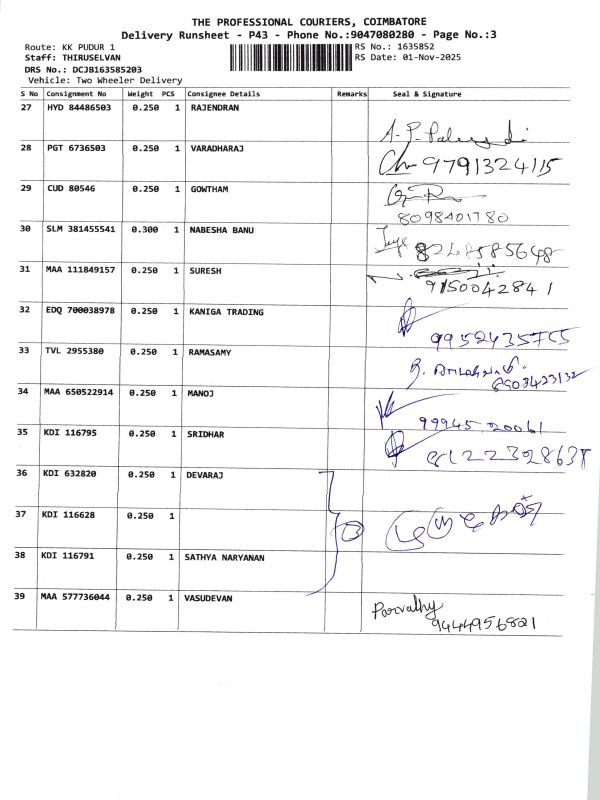 THE PROFESSIONAL COURIERS, COIMBATORE
Delivery Runsheet - P43 - Phone No.:9047080280 - Page No.:3
Route: KK PUDUR 1 RS No.: 1635852
Staff: THIRUSELVAN RS Date: 01-Nov-2025
DRS No.: DCJB163585203
Vehicle: Two Wheeler Delivery
S No Consignment No Weight PCS Consignee Details Remarks Seal & Signature
27 HYD 84486503 0.250 1 RAJENDRAN
28 PGT 6736503 0.250 1 VARADHARAJ 9791324115
29 CUD 80546 0.250 1 GOWTHAM
8098401780
30 SLM 381455541 0.300 1 NABESHA BANU
31 MAA 111849157 0.250 1 SURESH
9150042841
32 EDQ 700038978 0.250 1 KANIGA TRADING
33 TVL 2955380 0.250 1 RAMASAMY
8903423132
34 MAA 650522914 0.250 1 MANOJ
99945 20061
35 KDI 116795 0.250 1 SRIDHAR
36 KDI 632820 0.250 1 DEVARAJ
37 KDI 116628 0.250 1
38 KDI 116791 0.250 1 SATHYA NARYANAN
39 MAA 577736044 0.250 1 VASUDEVAN Parvathy
9444956821